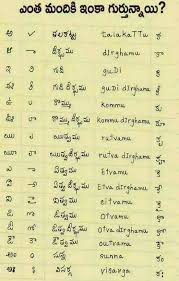 ఎంత మందికి ఇంకా గుర్తున్నాయి?
అ ✓ తలకట్టు talakaTTu క
ఆ ా దీర్ఘము dIrghamu కా
ఇ ి గుడి guDi కి
ఈ ీ గుడి దీర్ఘము guDi dIrghamu కీ
ఉ ు కొమ్ము kommu కు
ఊ ూ కొమ్ము దీర్ఘము kommu dIrghamu కూ
ఋ ృ ఋత్వము rutvamu కృ
ౠ ౄ ఋత్వదీర్ఘము rutva dIrghamu కౄ
ఎ ె ఎత్వము Etvamu కె
ఏ ే ఏత్వదీర్ఘము Etva dIrghamu కే
ఐ ై ఐత్వము eitvamu కై
ఒ ొ ఒత్వము Otvamu కొ
ఓ ో ఓత్వదీర్ఘము Otva dIrghamu కో
ఔ ౌ ఔత్వము outvamu కౌ
అం ం సున్న sunna కం
అః ః విసర్గ visarga కః